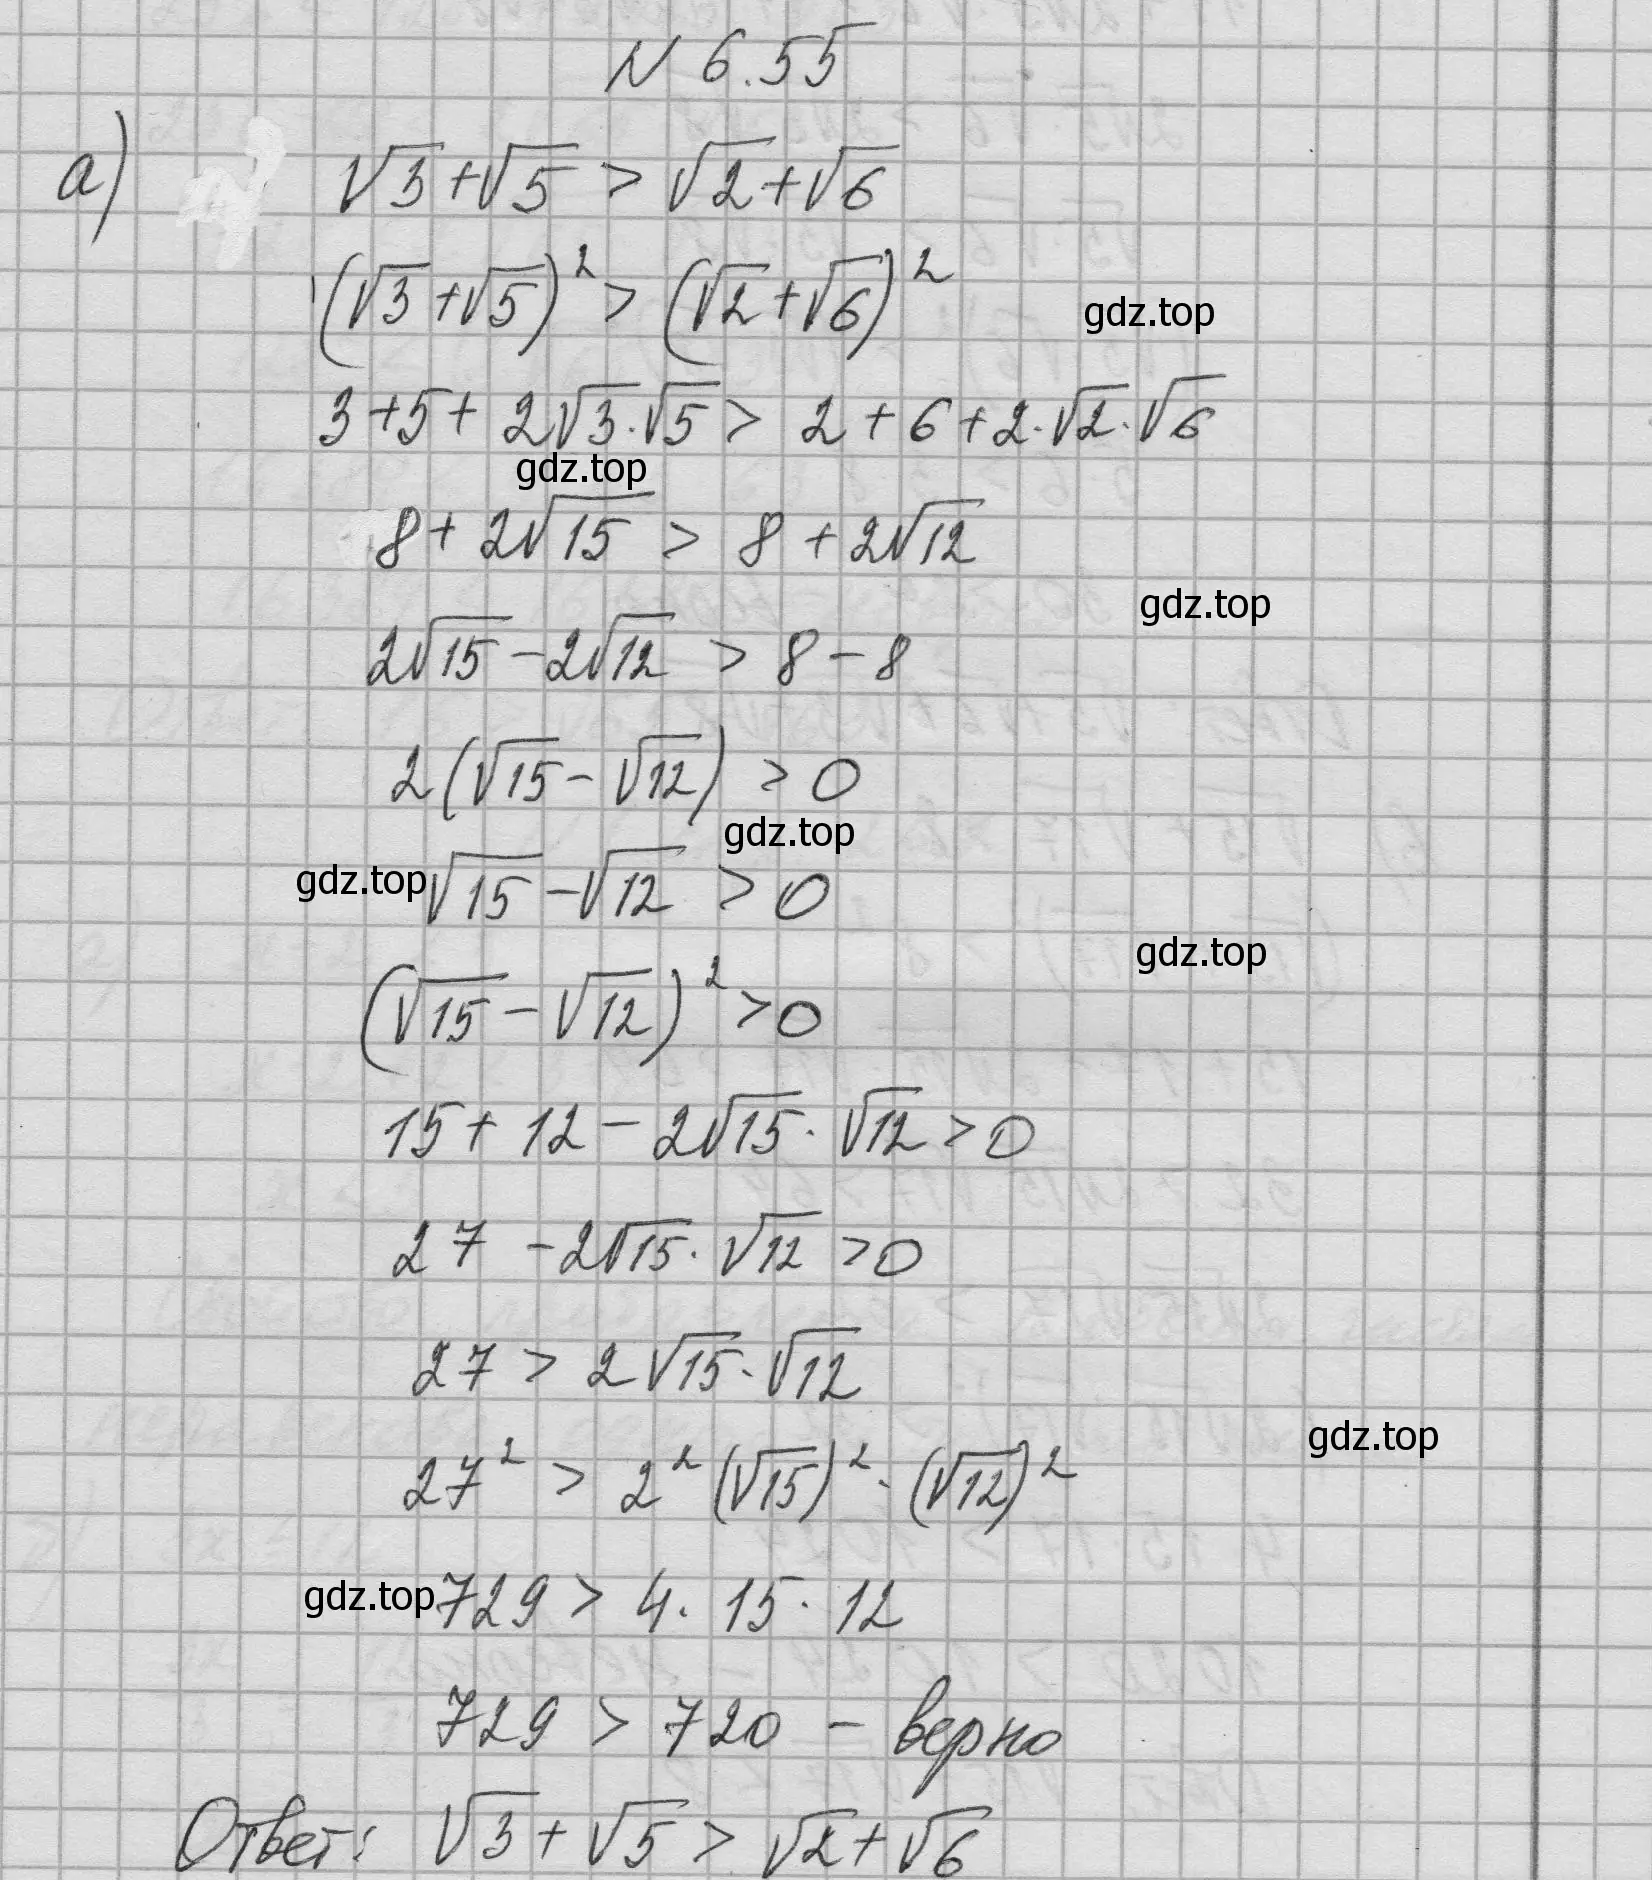 N 6.55
а) √3 + √5 > √2 + √6
(√3 + √5)² > (√2 + √6)²
gdz.top
3 + 5 + 2√3 · √5 > 2 + 6 + 2 · √2 · √6
gdz.top
8 + 2√15 > 8 + 2√12
gdz.top
2√15 − 2√12 > 8 − 8
2(√15 − √12) > 0
gdz.top
gdz.top √15 − √12 > 0
gdz.top
(√15 − √12)² > 0
15 + 12 − 2√15 · √12 > 0
27 − 2√15 · √12 > 0
27 > 2√15 · √12
gdz.top
27² > 2² (√15)² · (√12)²
gdz.top 729 > 4 · 15 · 12
729 > 720 − верно
Ответ: √3 + √5 > √2 + √6